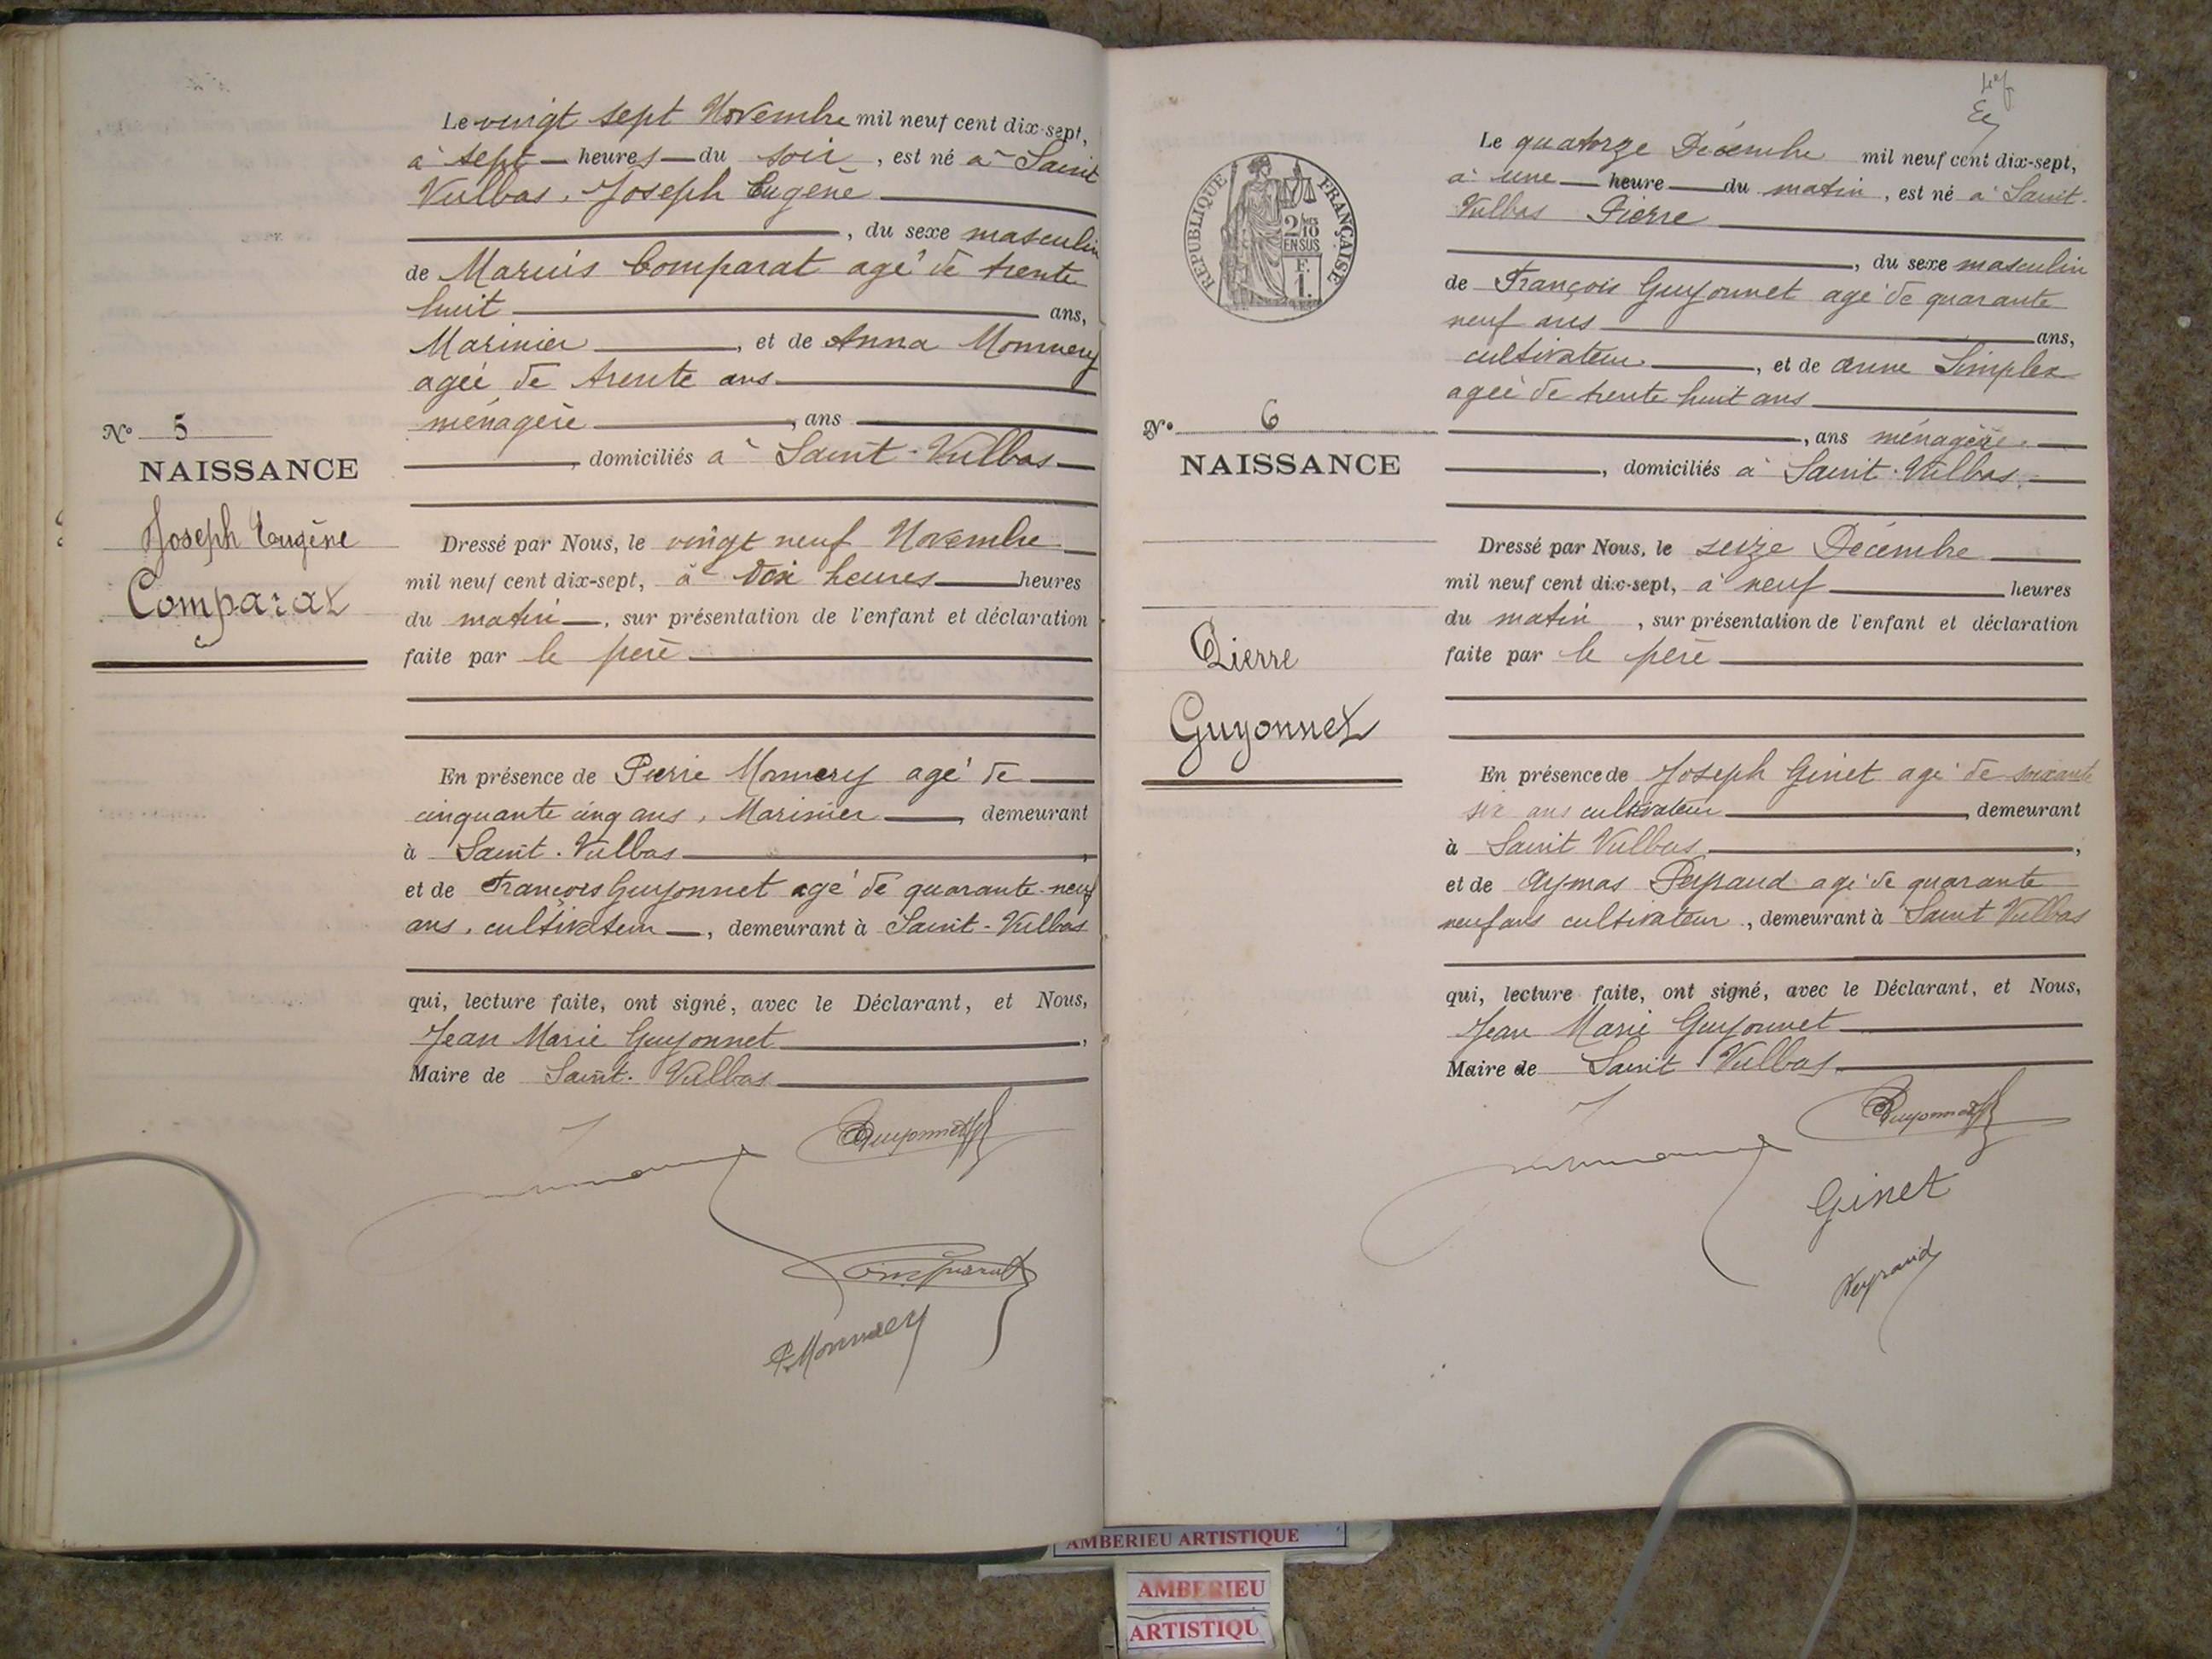 Le vingt sept Novembre mil neuf cent dix-sept,
à sept heures du soir, est né à Saint
Vulbas, Joseph Eugène
, du sexe masculin
de Marius Comparat agé de trente
huit ans,
Marinier, et de Anna Monnery
agée de trente ans
ménagère, ans
, domiciliés à Saint-Vulbas
N° 5
NAISSANCE
Joseph Eugène
Comparat
Dressé par Nous, le vingt neuf Novembre
mil neuf cent dix-sept, à dix heures heures
du matin, sur présentation de l'enfant et déclaration
faite par le père
En présence de Pierre Monnery agé de
cinquante cinq ans, Marinier, demeurant
à Saint-Vulbas,
et de François Guyonnet agé de quarante-neuf
ans, cultivateur, demeurant à Saint-Vulbas
qui, lecture faite, ont signé, avec le Déclarant, et Nous,
Jean Marie Guyonnet,
Maire de Saint-Vulbas
Guyonnet
Comparat
P. Monnery
RÉPUBLIQUE FRANÇAISE
2/10
EN SUS
F.
1.
Le quatorze Décembre mil neuf cent dix-sept,
à une heure du matin, est né à Saint-
Vulbas Pierre
, du sexe masculin
de François Guyonnet agé de quarante
neuf ans ans,
cultivateur, et de Anne Simplex
agée de trente huit ans
, ans ménagère.
, domiciliés à Saint-Vulbas.
N° 6
NAISSANCE
Pierre
Guyonnet
Dressé par Nous, le seize Décembre
mil neuf cent dix-sept, à neuf heures
du matin, sur présentation de l'enfant et déclaration
faite par le père
En présence de Joseph Ginet agé de soixante
six ans cultivateur, demeurant
à Saint Vulbas,
et de Aymas Peyraud agé de quarante
neuf ans cultivateur, demeurant à Saint Vulbas
qui, lecture faite, ont signé, avec le Déclarant, et Nous,
Jean Marie Guyonnet
Maire de Saint Vulbas
Guyonnet
Ginet
Peyraud
AMBERIEU ARTISTIQUE
AMBERIEU
ARTISTIQU